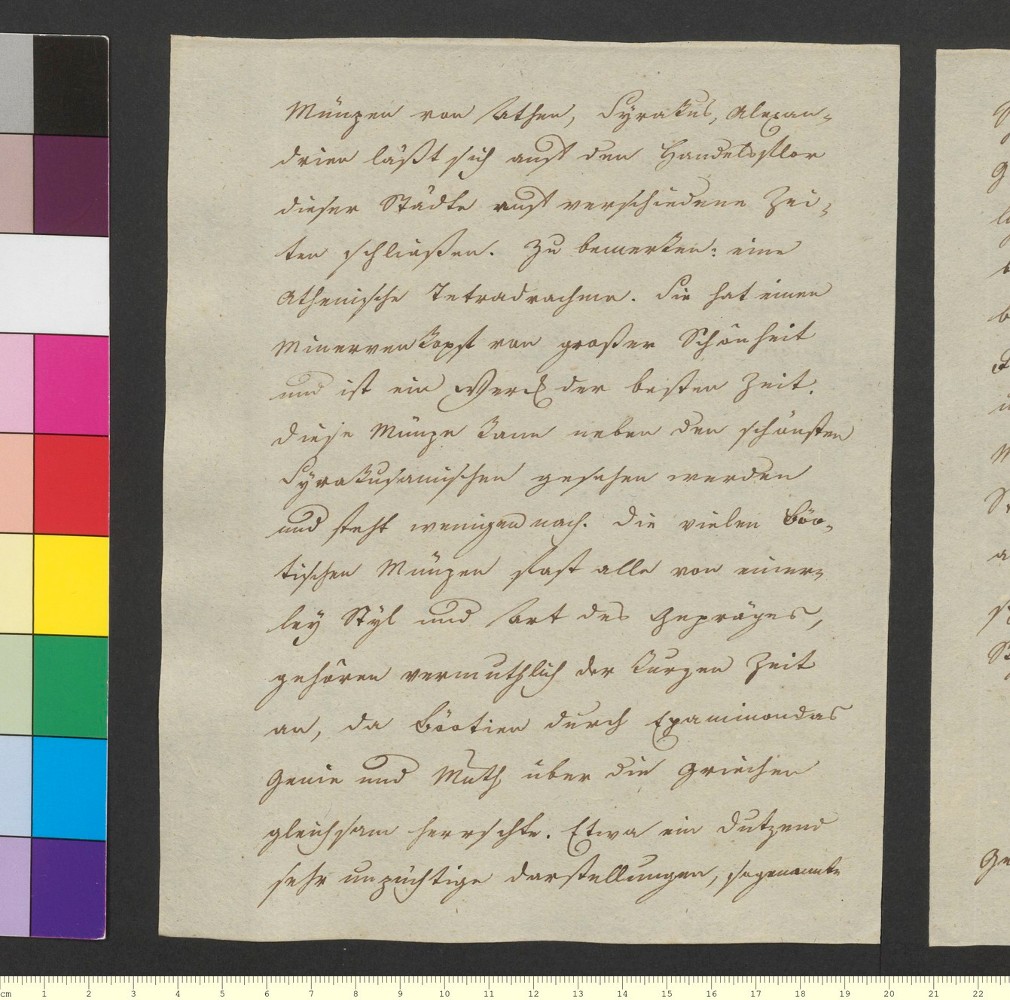 Münzen von Athen, Syrakus, Alexan-
drien läßt sich auf den Handelsflor
dieser Städte auf verschiedene Zei-
ten schließen. Zu bemerken: eine
Athenische Tetradrachme. Sie hat einen
Minervenkopf von großer Schönheit
und ist ein Werck der besten Zeit.
Diese Münze kann neben den schönsten
Syrakusanischen gesehen werden
und steht wenigen nach. Die vielen Böo-
tischen Münzen fast alle von einer-
ley Styl und Art des Gepräges,
gehören vermuthlich der kurzen Zeit
an, da Böotien durch Epaminondas
Genie und Muth über die Griechen
gleichsam herrschte. Etwa ein Dutzend
sehr unzüchtige Darstellungen, sogenannte